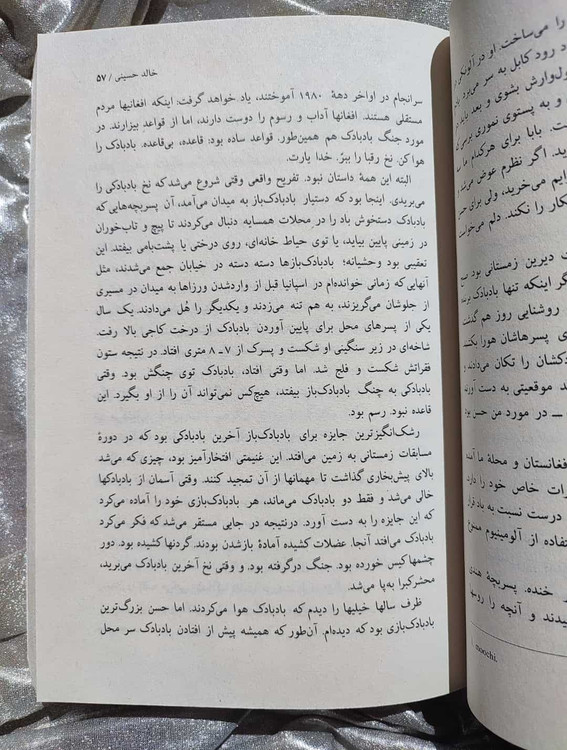 خالد حسینی / ۵۷
سرانجام در اواخر دههٔ ۱۹۸۰ آموختند، یاد خواهد گرفت: اینکه افغانیها مردم
مستقلی هستند. افغانها آداب و رسوم را دوست دارند، اما از قواعد بیزارند. در
مورد جنگ بادبادک هم همین‌طور. قواعد ساده بود: قاعده، بی‌قاعده. بادبادک را
هوا کن. نخ رقبا را ببُر. خدا یارت.
البته این همهٔ داستان نبود. تفریح واقعی وقتی شروع می‌شد که نخ بادبادکی را
می‌بریدی. اینجا بود که دستیار بادبادک‌باز به میدان می‌آمد، آن پسربچه‌هایی که
بادبادک دستخوش باد را در محلات همسایه دنبال می‌کردند تا پیچ و تاب‌خوران
در زمینی پایین بیاید، یا توی حیاط خانه‌ای، روی درختی یا پشت‌بامی بیفتد. این
تعقیبی بود وحشیانه؛ بادبادک‌بازها دسته دسته در خیابان جمع می‌شدند، مثل
آنهایی که زمانی خوانده‌ام در اسپانیا قبل از واردشدن ورزاها به میدان در مسیری
از جلوشان می‌گریزند، به هم تنه می‌زدند و یکدیگر را هُل می‌دادند. یک سال
یکی از پسرهای محل برای پایین آوردن بادبادک از درخت کاجی بالا رفت.
شاخه‌ای در زیر سنگینی او شکست و پسرک از ۷ـ۸ متری افتاد. در نتیجه ستون
فقراتش شکست و فلج شد. اما وقتی افتاد، بادبادک توی چنگش بود. وقتی
بادبادکی به چنگ بادبادک‌باز بیفتد، هیچ‌کس نمی‌تواند آن را از او بگیرد. این
قاعده نبود. رسم بود.
رشک‌انگیزترین جایزه برای بادبادک‌باز آخرین بادبادکی بود که در دورهٔ
مسابقات زمستانی به زمین می‌افتد. این غنیمتی افتخارآمیز بود، چیزی که می‌شد
بالای پیش‌بخاری گذاشت تا مهمانها از آن تمجید کنند. وقتی آسمان از بادبادکها
خالی می‌شد و فقط دو بادبادک می‌ماند، هر بادبادک‌بازی خود را آماده می‌کرد
که این جایزه را به دست آورد. درنتیجه در جایی مستقر می‌شد که فکر می‌کرد
بادبادک می‌افتد آنجا. عضلات کشیده آمادهٔ بازشدن بودند. گردنها کشیده بود. دور
چشمهاکیس خورده بود. جنگ درگرفته بود. و وقتی نخ آخرین بادبادک می‌برید،
محشرکبرا به‌پا می‌شد.
ظرف سالها خیلیها را دیدم که بادبادک هوا می‌کردند. اما حسن بزرگ‌ترین
بادبادک‌بازی بود که دیده‌ام. آن‌طور که همیشه پیش از افتادن بادبادک سر محل
را می‌ساخت. او در
رود کابل به سر می‌برد
بشوی و بعد
و به پستوی نموری
بابا برای هرکدام
اگر نظرم عوض
می‌خرید، ولی برای
را نکند. دلم
دیرین زمستانی بود.
اینکه تنها بادبادک
روشنایی روز هم
پسرهاشان هورا
را تکان می‌دادند و
موقعیتی به دست
ـ در مورد من حسن بود
افغانستان و محلهٔ ما
خاص خود را
درست نسبت به باد
از آلومینیوم
خنده. پسربچهٔ هندی
و آنچه را
noochi.